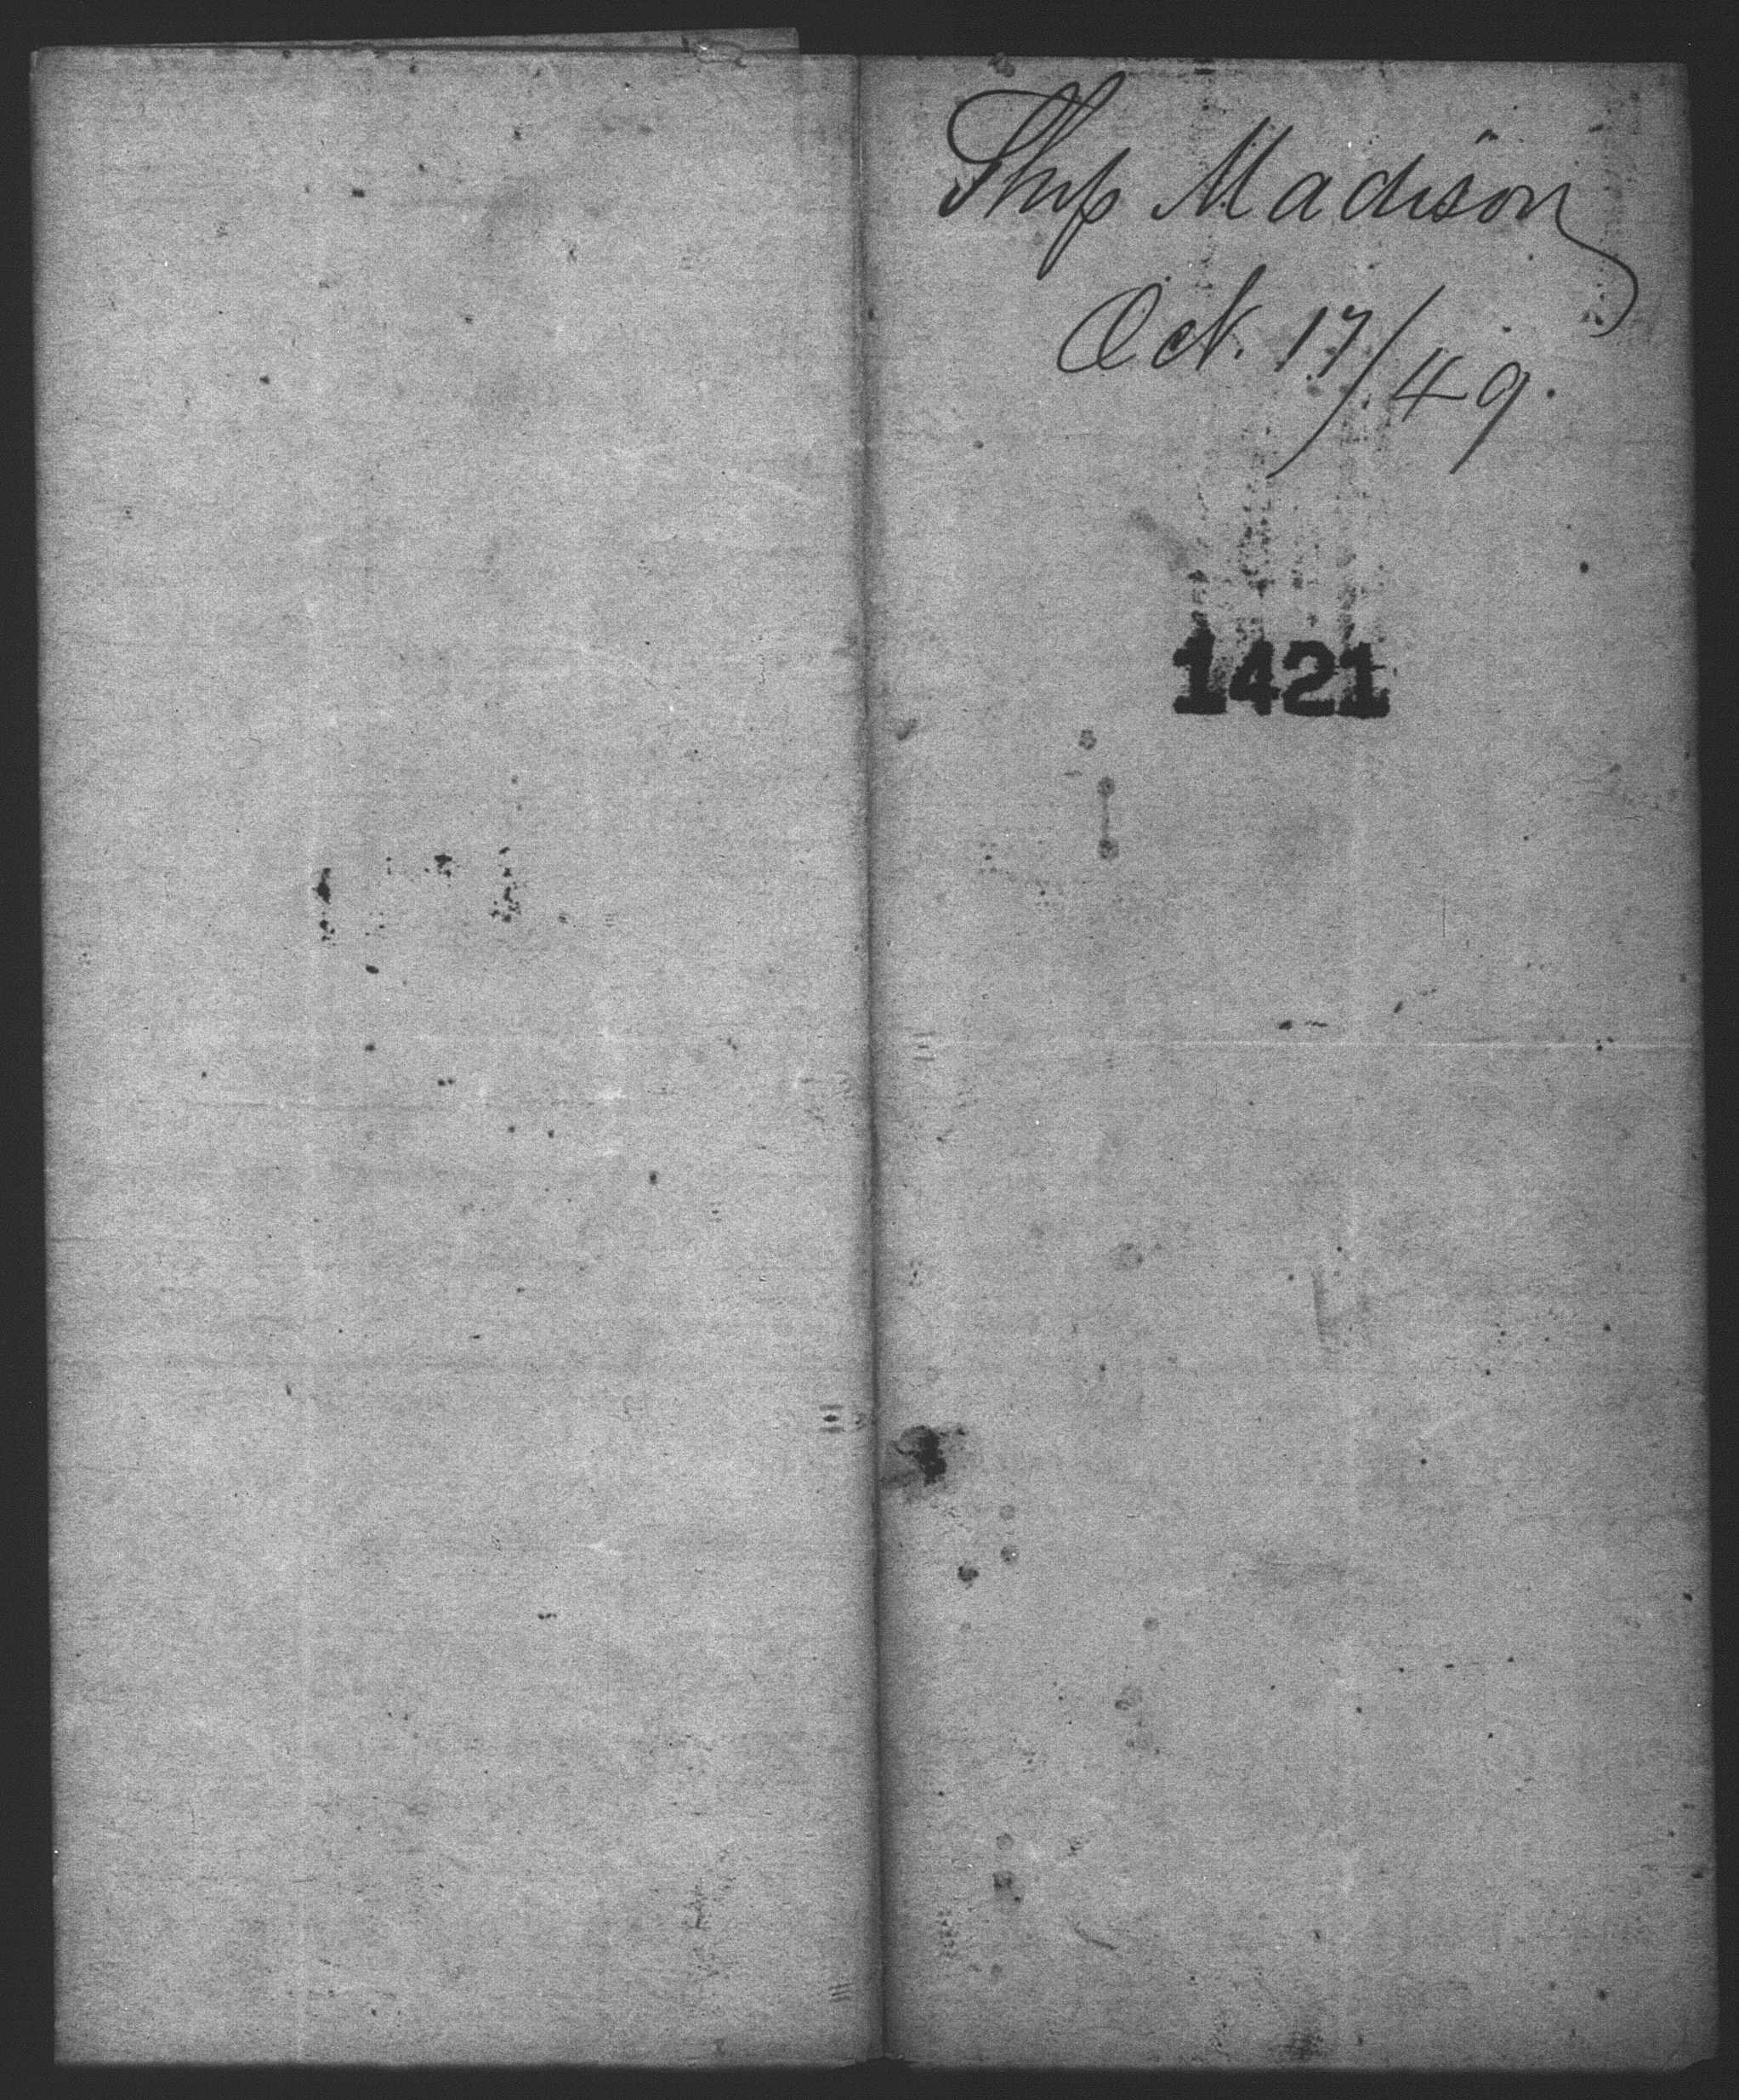 Ship Madison
Oct. 17/49.
1421